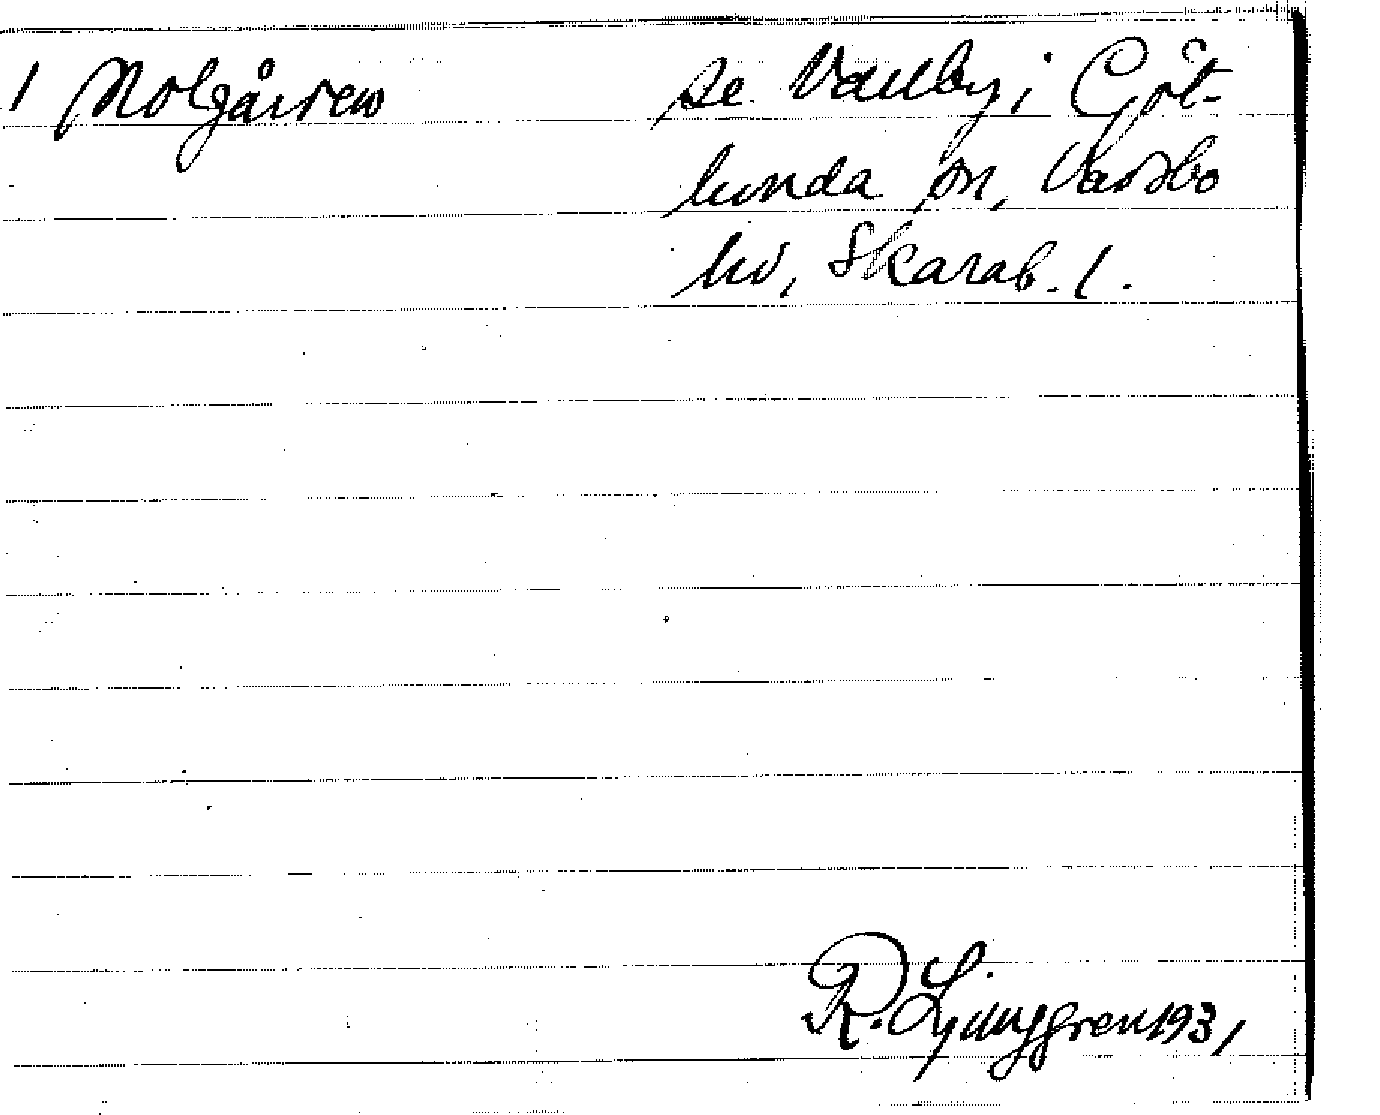 1 Nolgården se Vallby i Göt-
lunda sn, Vadsbo
hd, Skarab. l.
R. Ljunggren 1931